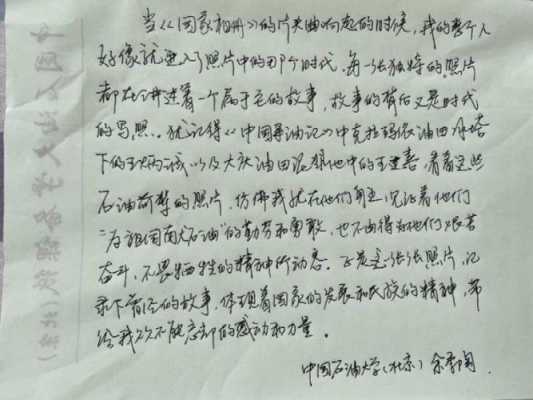 当《国家相册》的片头曲响起的时候，我的整个人
好像就进入了照片中的那个时代。每一张独特的照片
都在讲述着一个属于它的故事，故事的背后又是时代
的写照。犹记得《中国寻油记》中克拉玛依油田井塔
下的王炳诚以及大庆油田泥浆池中的王进喜，看着这些
石油前辈的照片，仿佛我就在他们身边，见证着他们
“为祖国献石油”的勤劳和勇敢，也不由得为他们艰苦
奋斗、不畏牺牲的精神所动容。正是这一张张照片，记
录下曾经的故事，体现着国家的发展和民族的精神，带
给我久久不能忘却的感动和力量。
中国石油大学（北京）余